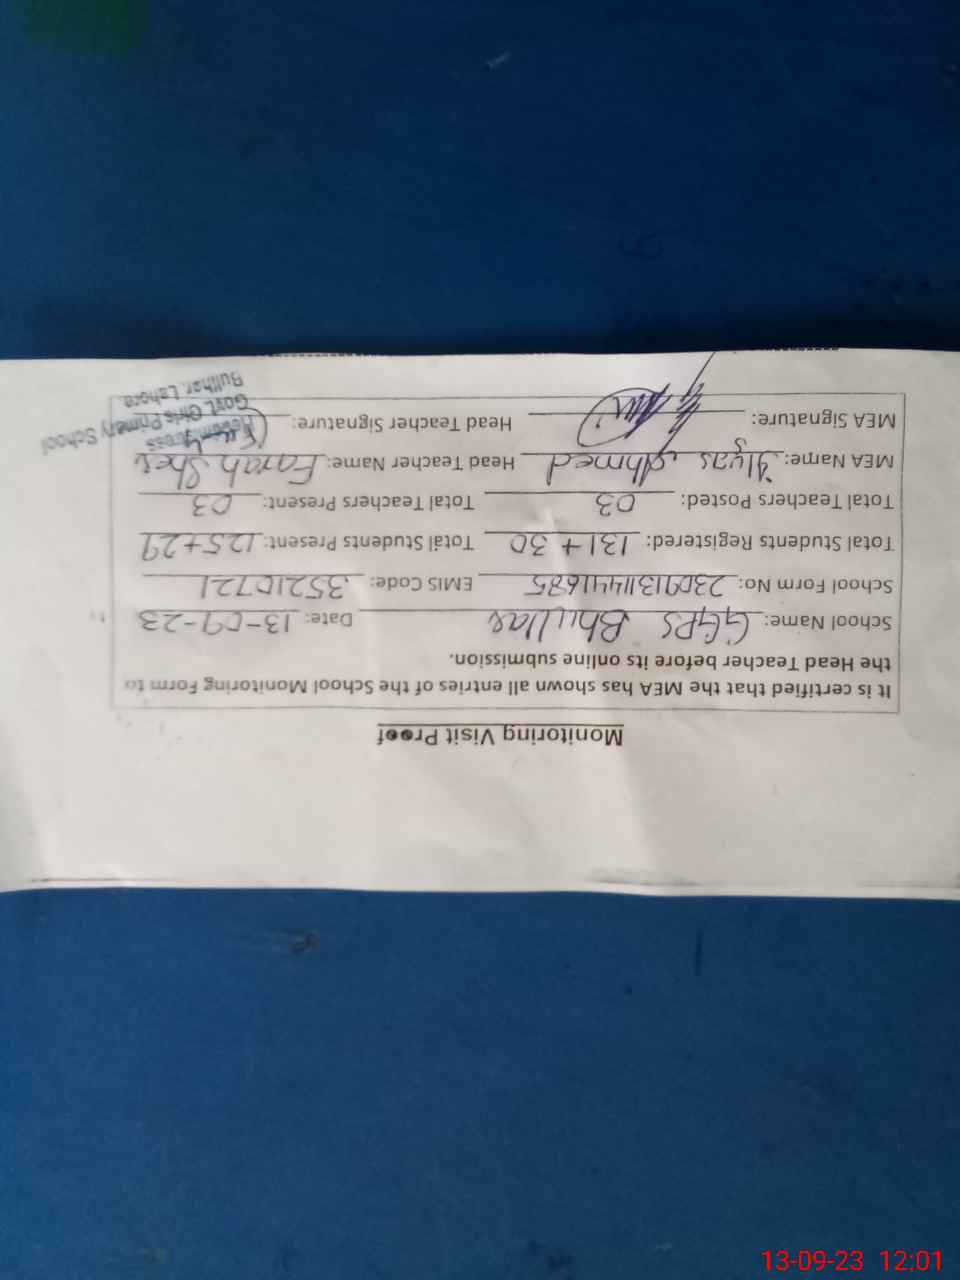 Monitoring Visit Proof
It is certified that the MEA has shown all entries of the School Monitoring Form to
the Head Teacher before its online submission.
School Name: GGPS Bhullar Date: 13-09-23
School Form No: 23091311441685 EMIS Code: 35210721
Total Students Registered: 131+30 Total Students Present: 125+29
Total Teachers Posted: 03 Total Teachers Present: 03
MEA Name: Ilyas Ahmed Head Teacher Name: Farah Sher
MEA Signature: Head Teacher Signature:
Headmistress
Govt. Girls Primary School
Bullhar, Lahore.
13-09-23 12:01